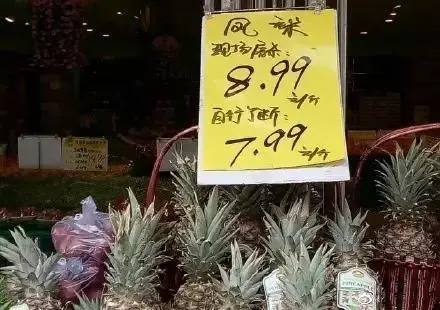 凤 梨
现场屠杀:
8.99 元/斤
自行了断:
7.99 元/斤